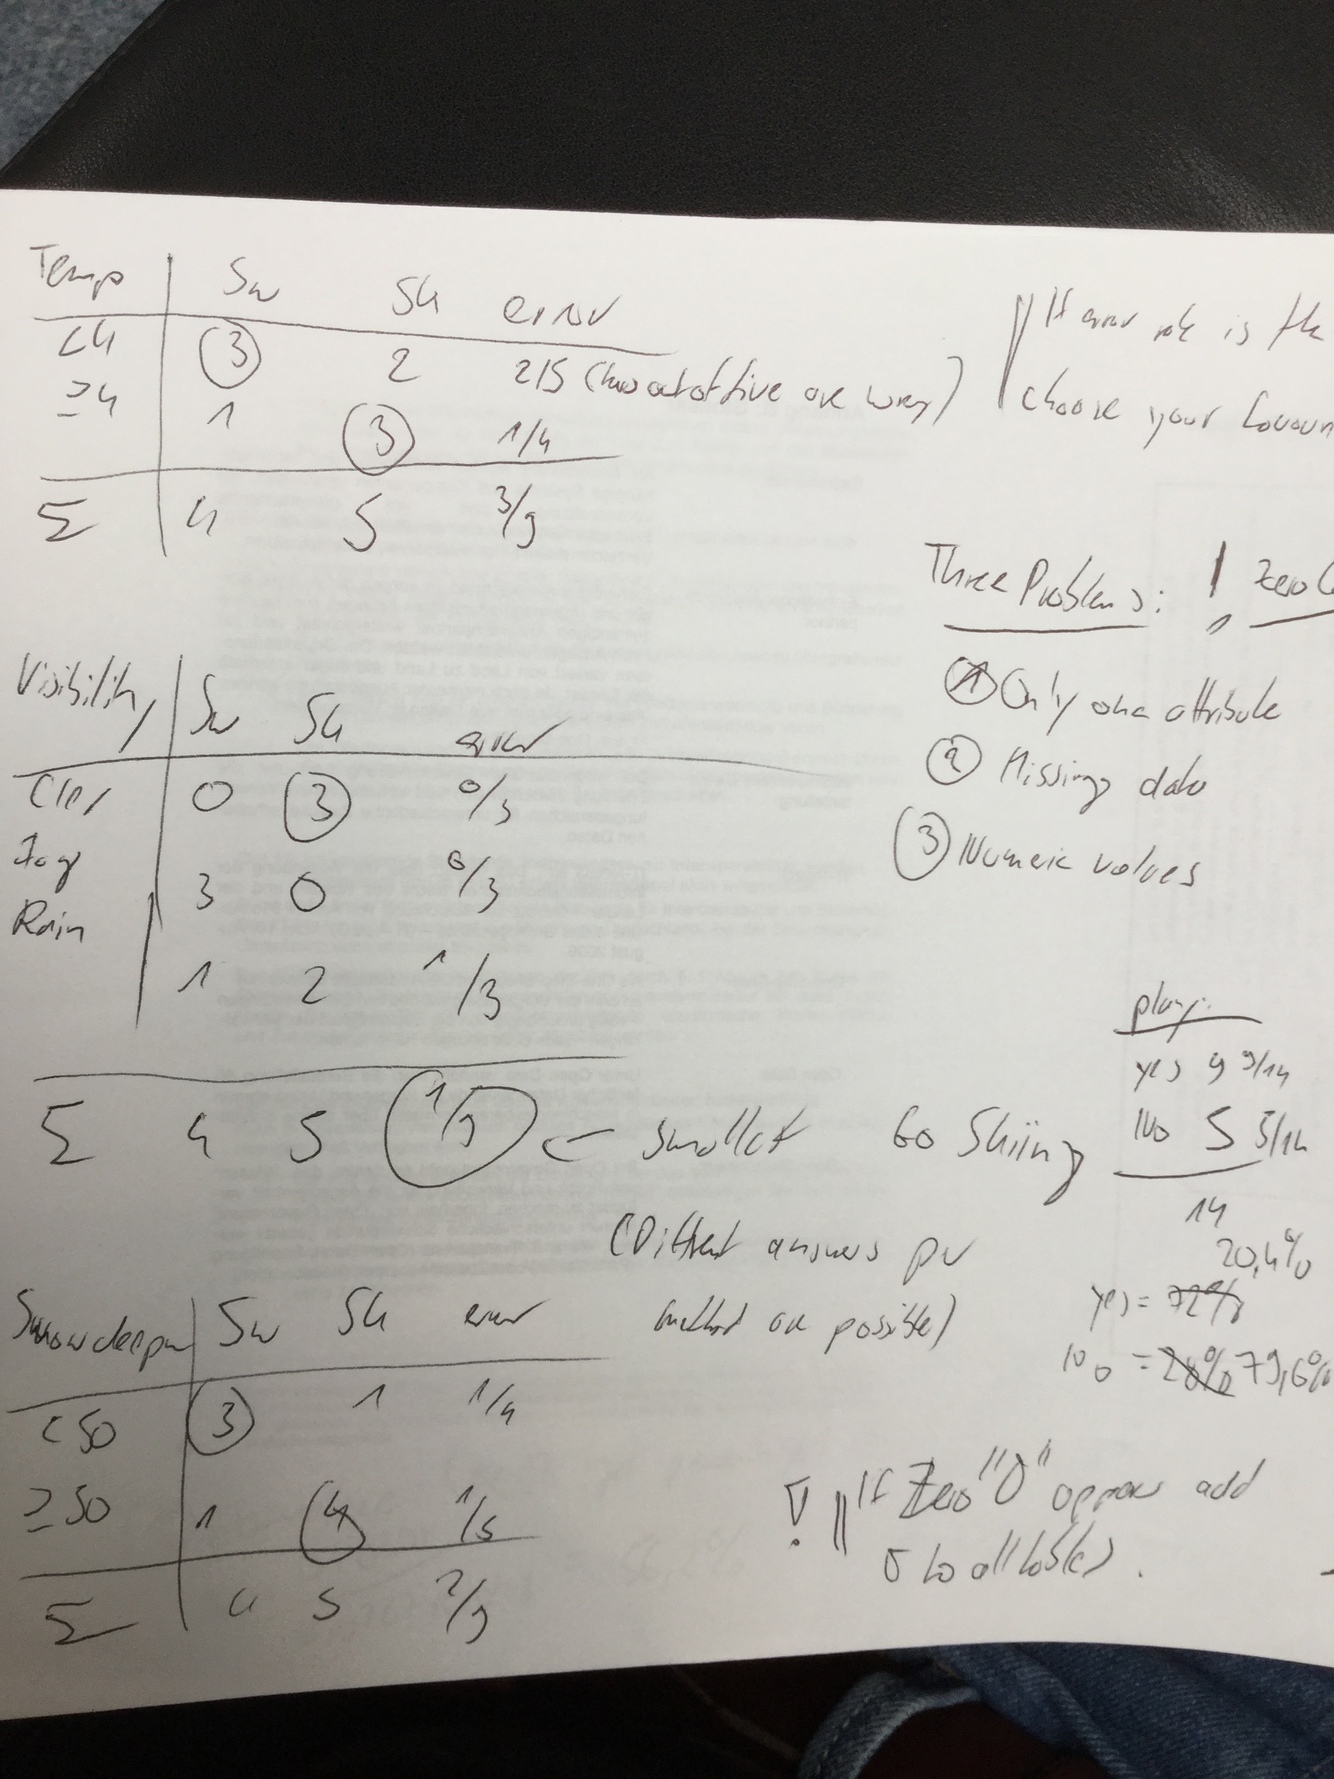 Temp Sw Sk error
<4 3 2 2/5 (two out of five are wrong)
≥4 1 3 1/4
Σ 4 5 3/9
If error rate is the
choose your
Three Problems: ! Zero
1 Only one attribute
2 Missing data
3 Numeric values
Visibility Sw Sk error
Clear 0 3 0/3
Fog 3 0 0/3
Rain 1 2 1/3
Σ 4 5 1/9 ← smallest Go Skiing
(Different answers per
method are possible)
play:
yes 9 9/14
no 5 5/14
14
20,4%
yes = 72%
no = 28% 79,6%
Sw Sk error
<50 3 1 1/4
≥50 1 4 1/5
Σ 4 5 2/9
! || If Zero "0" appear add
to all